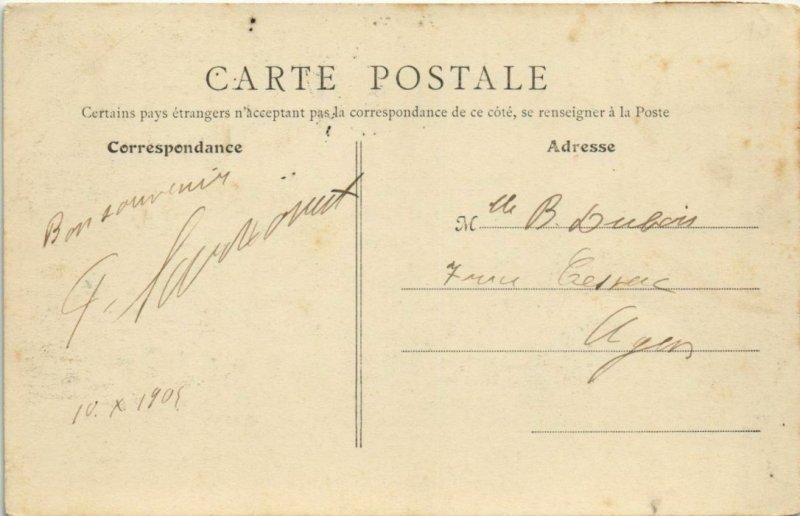 CARTE POSTALE
Certains pays étrangers n'acceptant pas la correspondance de ce côté, se renseigner à la Poste
Correspondance
Bon souvenir
10. X 1905
Adresse
Mlle B. Dubois
7 rue
Agen